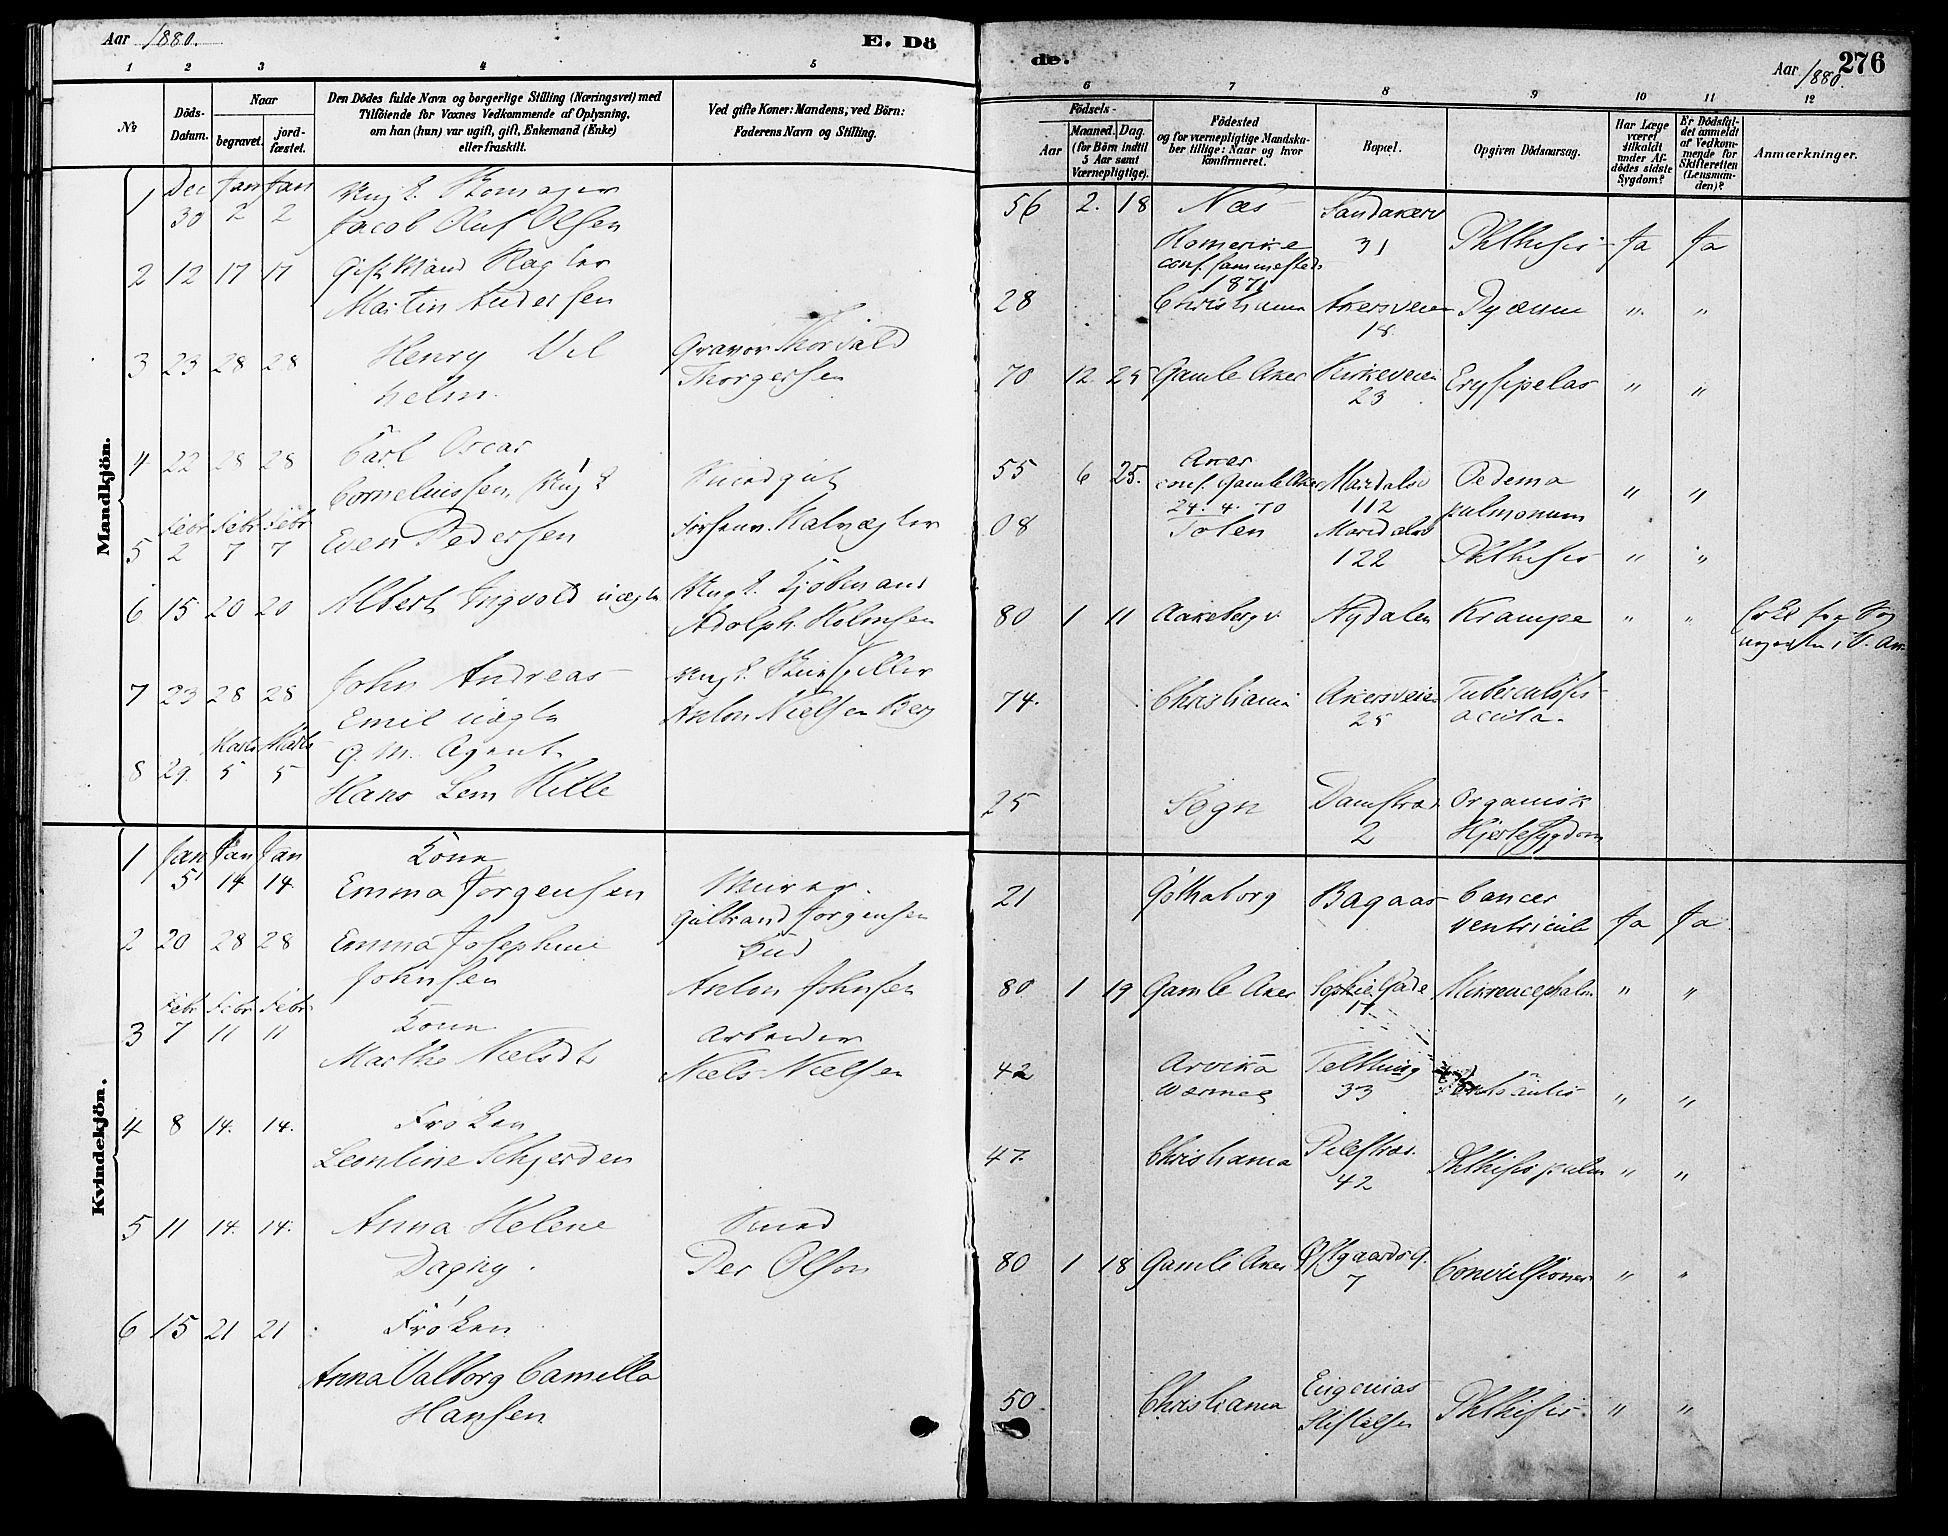 Aar 1880.
E. Dö
1 2 3 4 5
№
Döds-
Datum.
Naar
begravet.
jord-
fæstet.
Den Dödes fulde Navn og borgerlige Stilling (Næringsvei) med
Tilföiende for Voxnes Vedkommende af Oplysning,
om han (hun) var ugift, gift, Enkemand (Enke)
eller fraskilt.
Ved gifte Koner: Mandens, ved Börn:
Faderens Navn og Stilling.
Mandkjön.
1 Dec Jan Jan Ungk. Skomager
30 2 2 Jacob Oluf Olsen
2 12 17 17 Gift Mand
Martin Andersen
3 23 28 28 Henry Vil
helm.
Gravør Thorvald
Thorgersen
4 22 28 28 Carl Oscar
Corneliussen, Ungk
Febr Febr Febr
5 2 7 7 Even Pedersen
6 15 20 20 Albert Ingvold uægte
Ungk. Kjøbmand
Adolph Holmsen
7 23 28 28 John Andreas
Emil uægte
Ungk.
Anton Nielsen Berg
Marts Marts
8 29 5 5 G. M. Agent
Hans Lem Hille
Kvindekjön.
1 Jan Jan Jan Kone
5 14 14 Emma Jørgensen
Murer.
Gulbrand Jørgensen
2 20 28 28 Emma Josephine
Johnsen
Bud
Anton Johnsen
Febr Febr Febr
3 7 11 11 Kone
Marthe Nielsdt
Arbeider
Niels Nielsen
4 8 14. 14. Frøken
Leontine Schjerden
5 11 14. 14. Anna Helene
Dagny.
Smed
Per Olson
6 15 21 21 Frøken
Anna Valborg Camilla
Hansen
de.
Aar 1880.
276
6 7 8 9 10 11 12
Födsels-
Aar
Maaned. Dag.
(for Börn indtil
5 Aar samt
Værnepligtige).
Födested
og for værnepligtige Mandska-
ber tillige: Naar og hvor
konfirmeret.
Bopæl.
Opgiven Dödsaarsag.
Har Læge
været
tilkaldt
under Af-
dödes sidste
Sygdom?
Er Dödsfal-
det anmeldt
af Vedkom-
mende for
Skifteretten
(Lensman-
den)?
Anmærkninger.
56 2. 18 Næs
Romerike
conf. sammesteds
1871
Sandakerv
31
Phthisis Ja Ja
28 Christiania Akersveien
18
Pyæmi " "
70 12. 25 Gamle Aker Kirkeveien
23
Erysipelas " "
55 6 25. Aker
conf. Gamle Aker
24. 4. 70
Maridalsv
112
Oedema
pulmonum " "
08 Toten Maridalsv
122
Phthisis " "
80 1 11 Aakebergv. Nydalen Krampe " "
74. Christiania Akersveien
25
Tuberculosis
acuta.
25 Sogn Damstræd
2
Organisk
Hjertesygdom
21 Gøthaborg Bagaas Cancer
ventriculi Ja Ja
80 1 19 Gamle Aker Sophies Gade
17
Mikrencephalon " "
42 Arvika
Wermeg
Telthusg
33
" "
47. Christiania Pilestræd.
42
Phthisis pulm " "
80 1 18 Gamle Aker Østgaardsg.
7
Convulsioner " "
50 Christiania Eugenias
Stiftelse
Phthisis. " "